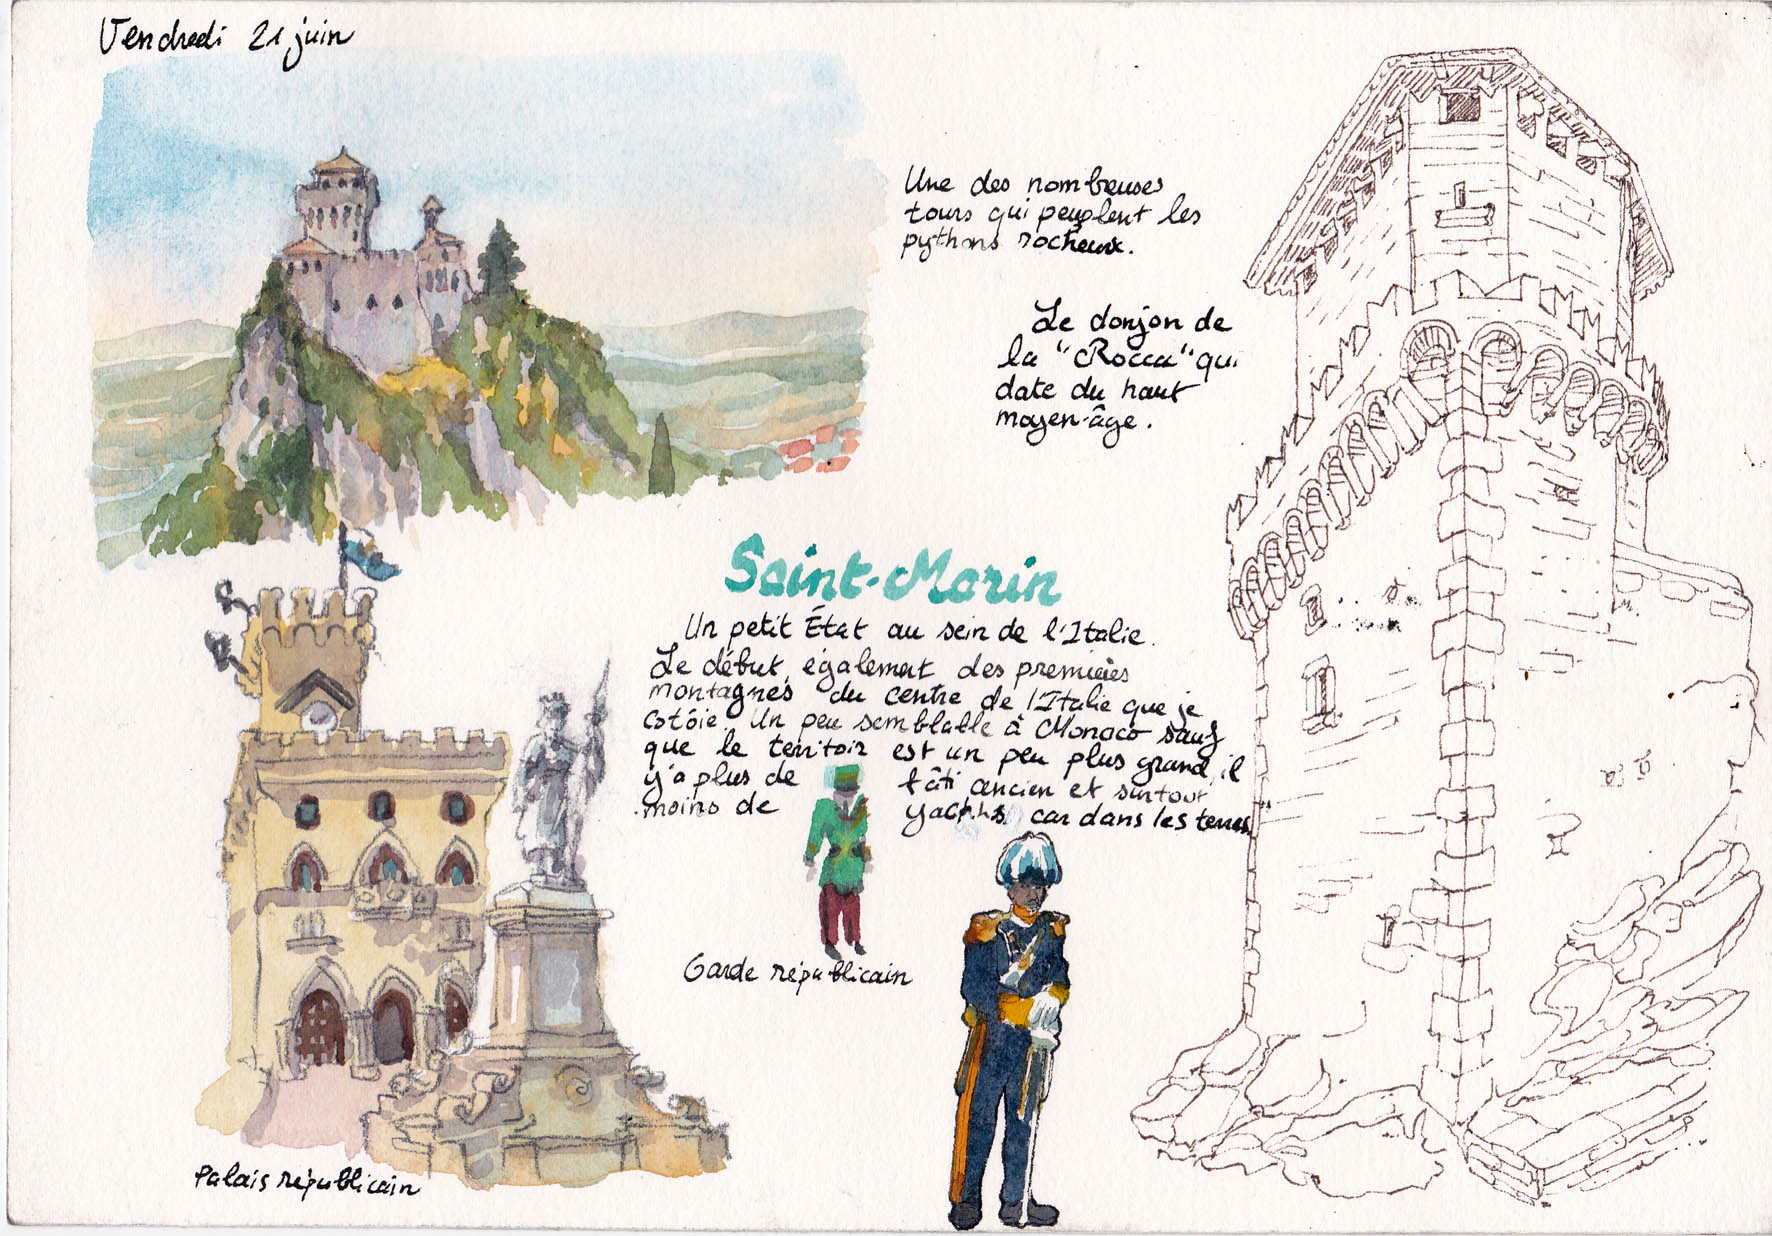 Vendredi 21 juin
Une des nombreuses
tours qui peuplent les
pythons rocheux.
Le donjon de
la "Rocca" qui
date du haut
moyen-âge.
Saint-Marin
Un petit État au sein de l'Italie.
Le début, également des premières
montagnes du centre de l'Italie que je
côtoie. Un peu semblable à Monaco sauf
que le territoir est un peu plus grand, il
y'a plus de bâti ancien et surtout
moins de yachts car dans les terres
Garde républicain
Palais républicain